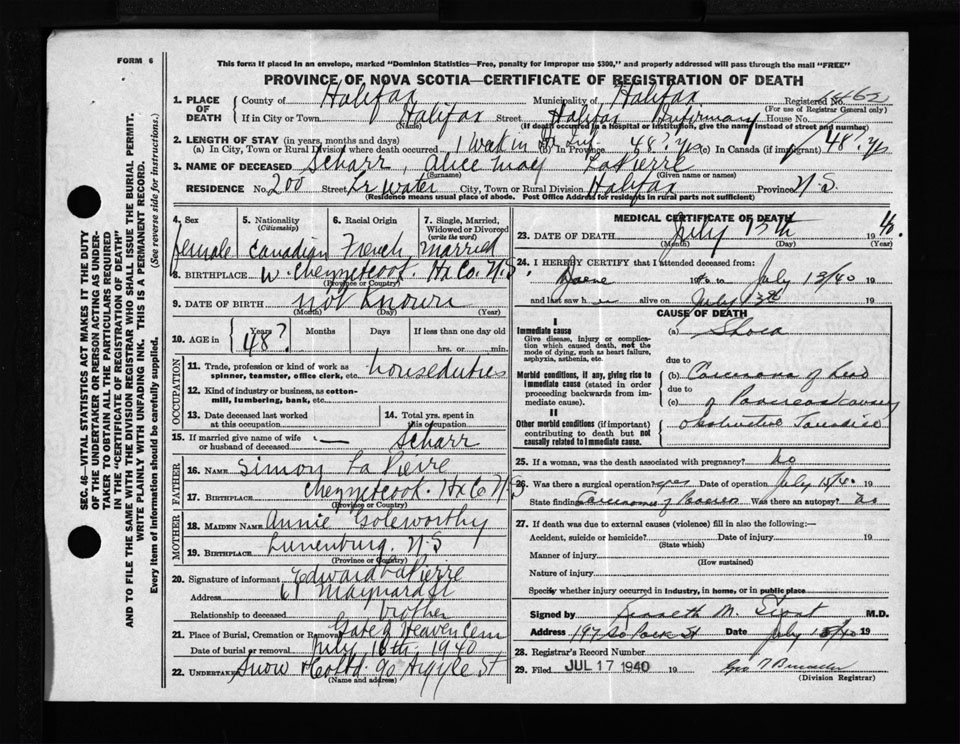 FORM 6
This form if placed in an envelope, marked "Dominion Statistics—Free, penalty for improper use $300," and properly addressed will pass through the mail "FREE"
PROVINCE OF NOVA SCOTIA—CERTIFICATE OF REGISTRATION OF DEATH
1. PLACE OF DEATH
County of Halifax Municipality of Halifax Registered No.
(For use of Registrar General only)
If in City or Town Halifax Street Halifax Infirmary House No.
(Name) (If death occurred in a hospital or institution, give the name instead of street and number)
2. LENGTH OF STAY (in years, months and days)
(a) In City, Town or Rural Division where death occurred 1 week in (b) In Province 48 yrs (c) In Canada (if immigrant) 48 yrs
3. NAME OF DECEASED Scharr, Alice May LaPierre
(Surname) (Given name or names)
RESIDENCE No. 200 Street Lr Water City, Town or Rural Division Halifax Province N.S.
(Residence means usual place of abode. Post Office Address for residents in rural parts not sufficient)
4. Sex
female
5. Nationality (Citizenship)
Canadian
6. Racial Origin
French
7. Single, Married, Widowed or Divorced (write the word)
Married
8. BIRTHPLACE W. Chezzetcook. Hx Co. N.S.
(Province or Country)
9. DATE OF BIRTH not known
(Month) (Day) (Year)
10. AGE in Years Months Days If less than one day old
48? hrs. or min.
OCCUPATION
11. Trade, profession or kind of work as spinner, teamster, office clerk, etc. house duties
12. Kind of industry or business, as cotton-mill, lumbering, bank, etc.
13. Date deceased last worked at this occupation
14. Total yrs. spent in this occupation
15. If married give name of wife or husband of deceased — Scharr
FATHER
16. NAME Simon LaPierre
17. BIRTHPLACE Chezzetcook. Hx Co N.S
(Province or Country)
MOTHER
18. MAIDEN NAME Annie Goleworthy
19. BIRTHPLACE Lunenburg. N.S
(Province or Country)
20. Signature of informant Edward LaPierre
Address 61 Maynard St
Relationship to deceased brother
21. Place of Burial, Cremation or Removal Gate of Heaven Cem
Date of burial or removal July 16th, 1940
22. Undertaker Snow & Co Ltd. 90 Argyle St
(Name and address)
MEDICAL CERTIFICATE OF DEATH
23. DATE OF DEATH July 13th
(Month) (Day) (Year)
24. I HEREBY CERTIFY that I attended deceased from:
June 19 to July 13/40 19
and last saw h er alive on July 13th 19
CAUSE OF DEATH
I
Immediate cause
Give disease, injury or complication which caused death, not the mode of dying, such as heart failure, asphyxia, asthenia, etc.
(a) Shock
due to
Morbid conditions, if any, giving rise to immediate cause (stated in order proceeding backwards from immediate cause).
(b) Carcinoma of head
due to
(c) of Pancreas causing
II
Other morbid conditions (if important) contributing to death but not causally related to immediate cause.
Obstructive Jaundice
25. If a woman, was the death associated with pregnancy? no
26. Was there a surgical operation? yes Date of operation July 19
State finding Carcinoma of Pancreas Was there an autopsy? no
27. If death was due to external causes (violence) fill in also the following:—
Accident, suicide or homicide? Date of injury 19
(State which)
Manner of injury
(How sustained)
Nature of injury
Specify whether injury occurred in industry, in home, or in public place
Signed by Kenneth M. Grant M.D.
Address 197 So Park St Date July 19
28. Registrar's Record Number
29. Filed JUL 17 1940 19
(Division Registrar)
SEC. 46—VITAL STATISTICS ACT MAKES IT THE DUTY
OF THE UNDERTAKER OR PERSON ACTING AS UNDER-
TAKER TO OBTAIN ALL THE PARTICULARS REQUIRED
IN THE "CERTIFICATE OF REGISTRATION OF DEATH"
AND TO FILE THE SAME WITH THE DIVISION REGISTRAR WHO SHALL ISSUE THE BURIAL PERMIT.
WRITE PLAINLY WITH UNFADING INK. THIS IS A PERMANENT RECORD.
Every item of information should be carefully supplied. (See reverse side for instructions.)